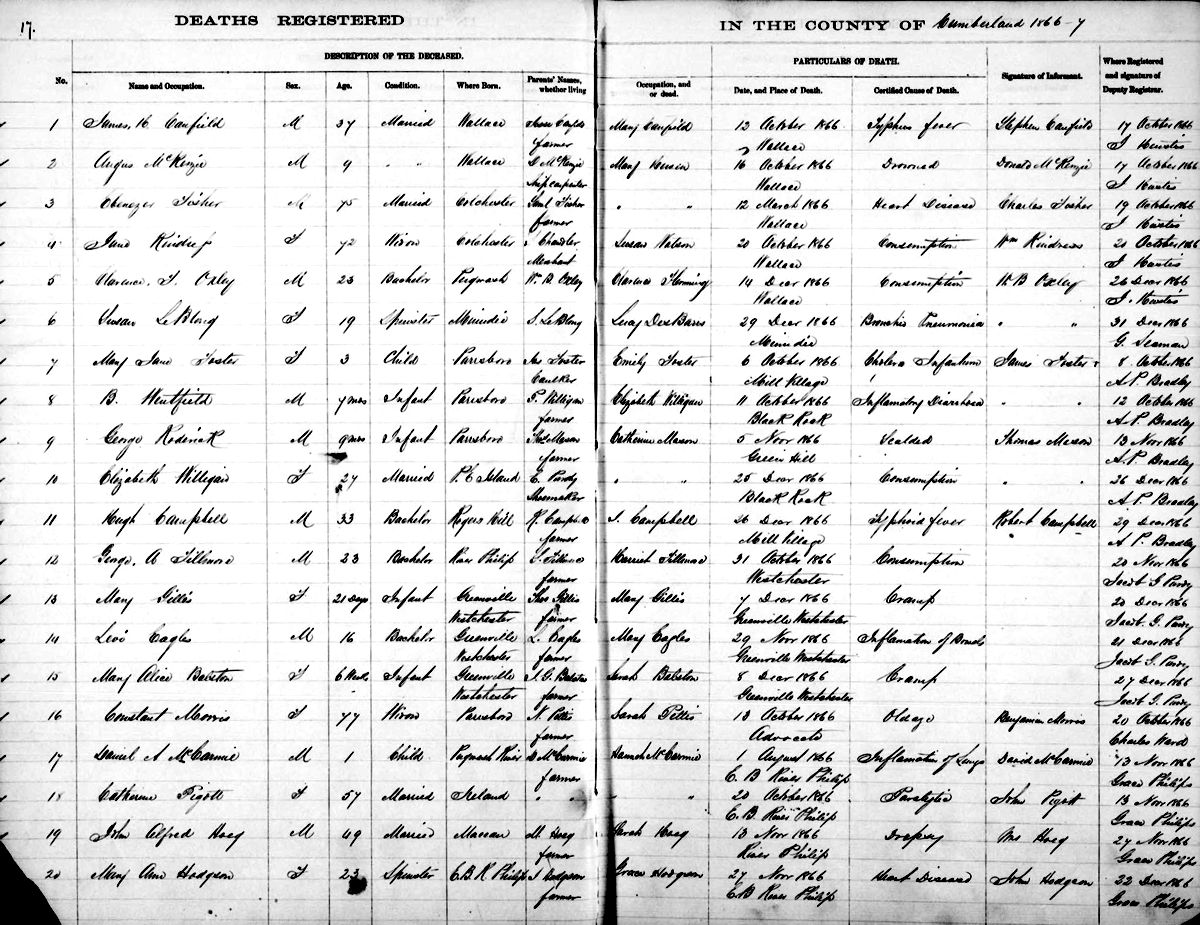 17.
DEATHS REGISTERED IN THE COUNTY OF Cumberland 1866-7
DESCRIPTION OF THE DECEASED. PARTICULARS OF DEATH.
No. Name and Occupation. Sex. Age. Condition. Where Born. Parents' Names, whether living Occupation, and or dead. Date, and Place of Death. Certified Cause of Death. Signature of Informant. Where Registered and signature of Deputy Registrar.
1 James H. Canfield M 37 Married Wallace Canfield Mary Canfield 12 October 1866 Typhus fever Stephen Canfield 17 October 1866
farmer Wallace
2 Angus McKenzie M 9 " " Wallace D McKenzie Mary 16 October 1866 Drowned Donald McKenzie 17 October 1866
Ship carpenter Wallace
3 Ebenezer Fosher M 75 Married Colchester Saml Fosher " " 12 March 1866 Heart Disease Charles Fosher 19 October 1866
farmer Wallace
4 Jane F 72 Widow Colchester Chandler Susan Watson 20 October 1866 Consumption Wm 20 October 1866
Merchant Wallace
5 Clarence F. Oxley M 23 Bachelor Pugwash W. B. Oxley Clarence 14 Decr 1866 Consumption W B Oxley 26 Decr 1866
Wallace
6 Susan LeBlong F 19 Spinster Minudie S. LeBlong Lucy DesBarres 29 Decr 1866 Bronchis Pneumonia " " 31 Decr 1866
Minudie G. Seaman
7 Mary Jane Foster F 3 Child Parrsboro Jas Foster Emily Foster 6 October 1866 Cholera Infantum James Foster 8 October 1866
Caulker Mill Village A. P. Bradley
8 B. Wentfield M 7 mos Infant Parrsboro F. Willigan Elizabeth Willigan 11 October 1866 Inflamatory Diarrhoea " " 12 October 1866
farmer Black Rock A. P. Bradley
9 George Roderick M 9 mos Infant Parrsboro Thos Mason Catherine Mason 5 Novr 1866 Scalded Thomas Mason 13 Novr 1866
farmer Green Hill A. P. Bradley
10 Elizabeth Willigan F 27 Married P. E Island E. Purdy " " 25 Decr 1866 Consumption " " 26 Decr 1866
Shoemaker Black Rock A. P. Bradley
11 Hugh Campbell M 33 Bachelor Rogers Hill H. Campbell S. Campbell 26 Decr 1866 Typhoid fever Robert Campbell 29 Decr 1866
farmer Mill Village A. P. Bradley
12 George A Fillmore M 23 Bachelor River Philip S. Fillmore Harriet Fillmore 31 October 1866 Consumption 20 Novr 1866
farmer Westchester Jacob G. Purdy
13 Mary Gillis F 21 Days Infant Greenville Thos Gillis Mary Gillis 7 Decr 1866 Cramp 20 Decr 1866
Westchester farmer Greenville Westchester Jacob G. Purdy
14 Levi Eagles M 16 Bachelor Greenville L. Eagles Mary Eagles 29 Novr 1866 Inflamation of Bowels 21 Decr 1866
Westchester farmer Greenville Westchester Jacob G. Purdy
15 Mary Alice Babston F 6 Weeks Infant Greenville J. G. Babston Sarah Babston 8 Decr 1866 Cramp 27 Decr 1866
Westchester farmer Greenville Westchester Jacob G. Purdy
16 Constant Morris F 77 Widow Parrsboro N. Pettis Sarah Pettis 13 October 1866 Old age Benjamin Morris 20 October 1866
farmer Advocate Charles Ward
17 Daniel A McCarmie M 1 Child Pugwash River D McCarmie Hannah McCarmie 1 August 1866 Inflamation of Lungs David McCarmie 13 Novr 1866
farmer E. B River Philip Grace Philips
18 Catherine Pigott F 57 Married Ireland " " " 20 October 1866 Paralytic John Pigott 13 Novr 1866
E. B River Philip Grace Philips
19 John Alfred Hoeg M 49 Married Maccan M. Hoeg Sarah Hoeg 13 Novr 1866 Dropsy Mrs Hoeg 27 Novr 1866
farmer River Philip Grace Philips
20 Mary Ann Hodgson F 23 Spinster E. B. R Philip J Hodgson Grace Hodgson 27 Novr 1866 Heart Disease John Hodgson 22 Decr 1866
farmer E. B River Philip Grace Philips